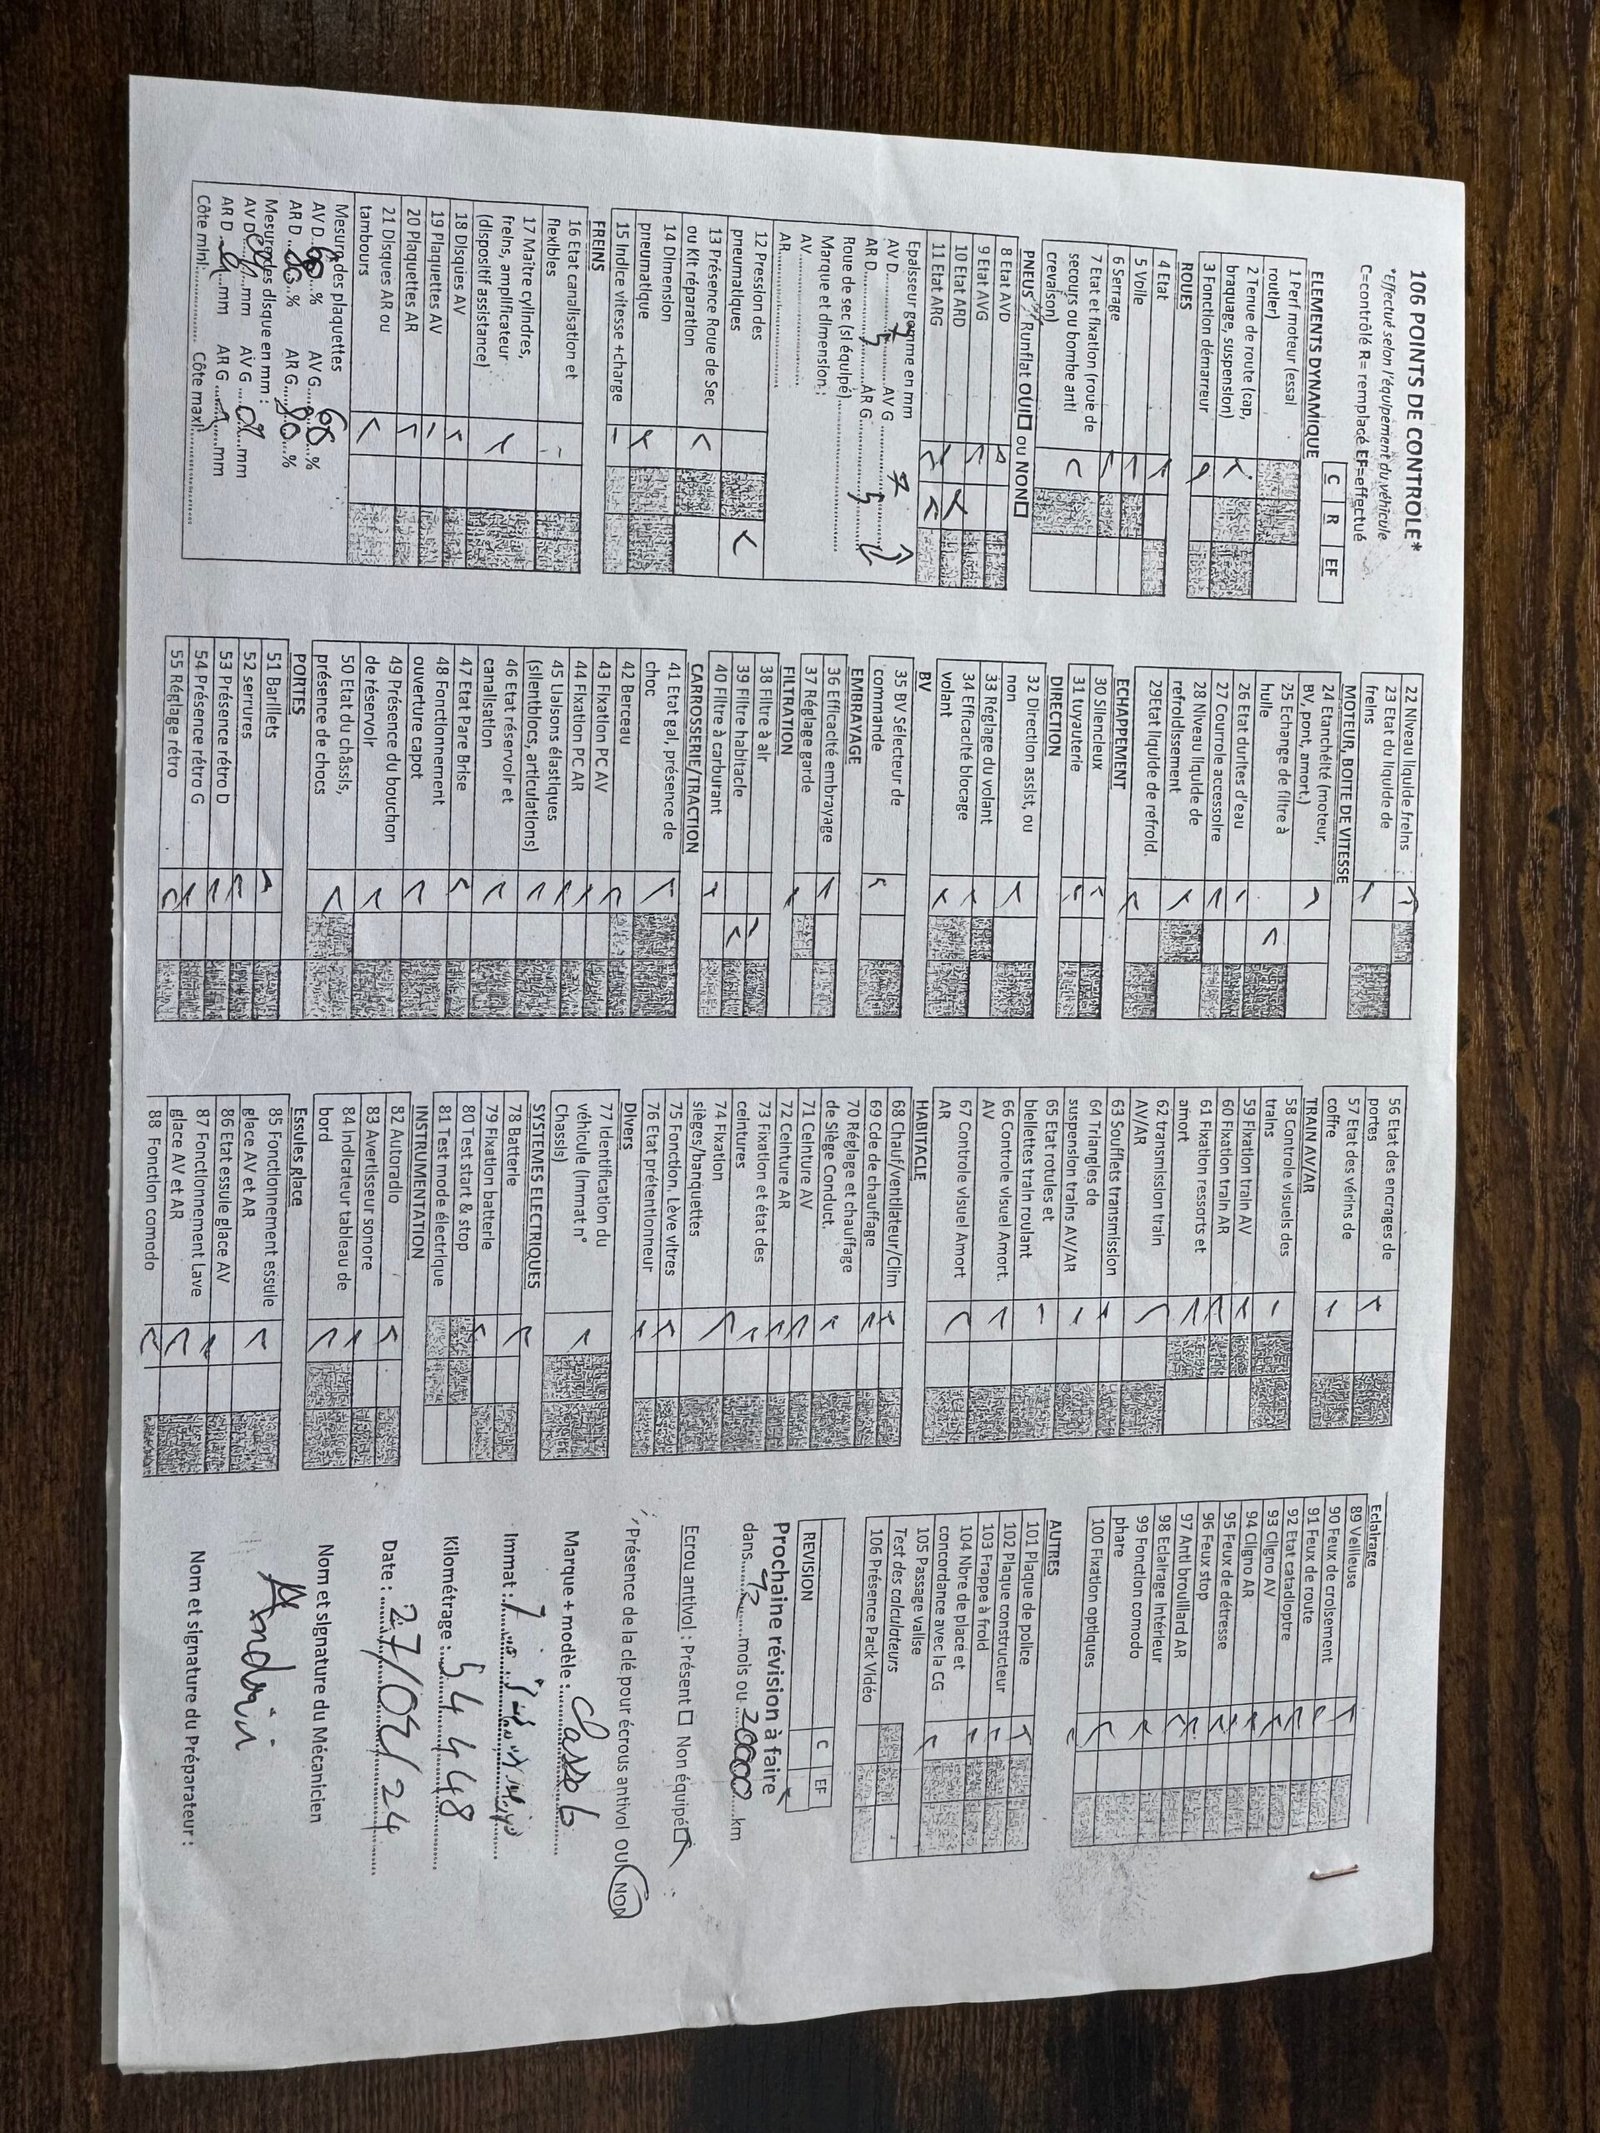 106 POINTS DE CONTROLE*
*Effectué selon l'équipement du véhicule
C=contrôlé R= remplacé EF=effectué
C R EF
ELEMENTS DYNAMIQUE
1 Perf moteur (essai
routier)
2 Tenue de route (cap,
braquage, suspension)
3 Fonction démarreur
ROUES
4 Etat
5 Voile
6 Serrage
7 Etat et fixation (roue de
secours ou bombe anti
crevaison)
PNEUS Runflat OUI☐ ou NON☐
8 Etat AVD
9 Etat AVG
10 Etat ARD
11 Etat ARG
Epaisseur gomme en mm
AV D ............ AV G ............
AR D ............ AR G ............
Roue de sec (si équipé)............
Marque et dimension :
AV............
AR............
12 Pression des
pneumatiques
13 Présence Roue de Sec
ou Kit réparation
14 Dimension
pneumatique
15 Indice vitesse +charge
FREINS
16 Etat canalisation et
flexibles
17 Maître cylindres,
freins, amplificateur
(dispositif assistance)
18 Disques AV
19 Plaquettes AV
20 Plaquettes AR
21 Disques AR ou
tambours
Mesures des plaquettes
AV D 60 % AV G 60 %
AR D 80 % AR G 80 %
Mesures des disque en mm :
AV D ......mm AV G ......mm
AR D ......mm AR G ......mm
Côte mini............ Côte maxi............
22 Niveau liquide freins
23 Etat du liquide de
freins
MOTEUR, BOITE DE VITESSE
24 Etanchéité (moteur,
BV, pont, amort.)
25 Echange de filtre à
huile
26 Etat durites d'eau
27 Courroie accessoire
28 Niveau liquide de
refroidissement
29Etat liquide de refroid.
ECHAPPEMENT
30 Silencieux
31 tuyauterie
DIRECTION
32 Direction assist, ou
non
33 Réglage du volant
34 Efficacité blocage
volant
BV
35 BV Sélecteur de
commande
EMBRAYAGE
36 Efficacité embrayage
37 Réglage garde
FILTRATION
38 Filtre à air
39 Filtre habitacle
40 Filtre à carburant
CARROSSERIE/TRACTION
41 Etat gal, présence de
choc
42 Berceau
43 Fixation PC AV
44 Fixation PC AR
45 Liaisons élastiques
(silentblocs, articulations)
46 Etat réservoir et
canalisation
47 Etat Pare Brise
48 Fonctionnement
ouverture capot
49 Présence du bouchon
de réservoir
50 Etat du châssis,
présence de chocs
PORTES
51 Barillets
52 serrures
53 Présence rétro D
54 Présence rétro G
55 Réglage rétro
56 Etat des encrages de
portes
57 Etat des vérins de
coffre
TRAIN AV/AR
58 Controle visuels des
trains
59 Fixation train AV
60 Fixation train AR
61 Fixation ressorts et
amort
62 transmission train
AV/AR
63 Soufflets transmission
64 Triangles de
suspension trains AV/AR
65 Etat rotules et
biellettes train roulant
66 Controle visuel Amort.
AV
67 Controle visuel Amort
AR
HABITACLE
68 Chauf/ventilateur/Clim
69 Cde de chauffage
70 Réglage et chauffage
de Siège Conduct.
71 Ceinture AV
72 Ceinture AR
73 Fixation et état des
ceintures
74 Fixation
sièges/banquettes
75 Fonction. Lève vitres
76 Etat prétentionneur
Divers
77 Identification du
véhicule (Immat n°
Chassis)
SYSTEMES ELECTRIQUES
78 Batterie
79 Fixation batterie
80 Test start & stop
81 Test mode électrique
INSTRUMENTATION
82 Autoradio
83 Avertisseur sonore
84 Indicateur tableau de
bord
Essuies glace
85 Fonctionnement essuie
glace AV et AR
86 Etat essuie glace AV
87 Fonctionnement Lave
glace AV et AR
88 Fonction comodo
Eclairage
89 Veilleuse
90 Feux de croisement
91 Feux de route
92 Etat catadioptre
93 Cligno AV
94 Cligno AR
95 Feux de détresse
96 Feux stop
97 Anti brouillard AR
98 Eclairage Intérieur
99 Fonction comodo
phare
100 Fixation optiques
AUTRES
101 Plaque de police
102 Plaque constructeur
103 Frappe à froid
104 Nbre de place et
concordance avec la CG
105 Passage valise
Test des calculateurs
106 Présence Pack Vidéo
REVISION C EF
Prochaine révision à faire
dans............mois ou 20000 km
Ecrou antivol : Présent ☐ Non équipé☐
Présence de la clé pour écrous antivol OUI NON
Marque + modèle :
Immat :
Kilométrage : 54448
Date : 27/02/24
Nom et signature du Mécanicien
Andrin
Nom et signature du Préparateur :